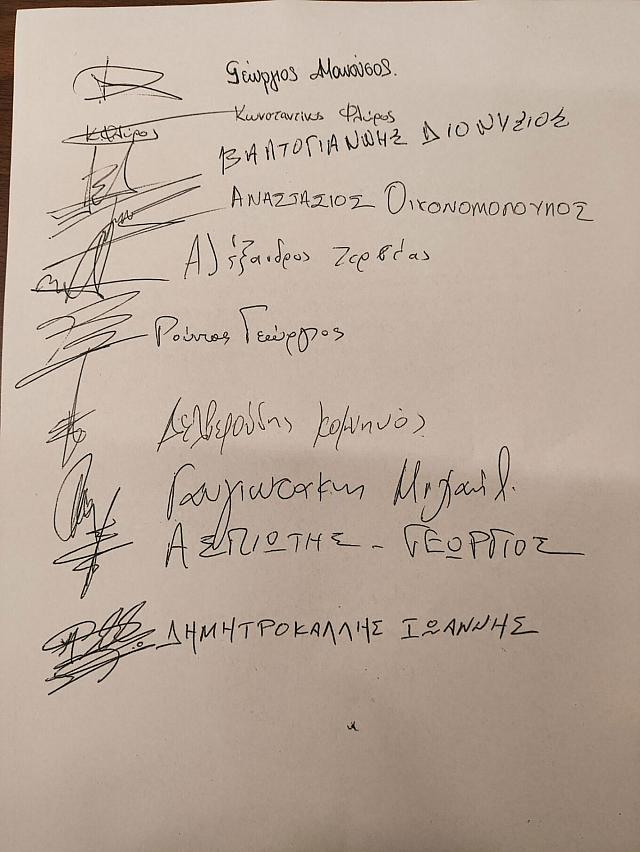 Γεώργιος Μανούσος.
Κωνσταντίνος Φλώρος
Κ Φλώρος
ΒΑΛΤΟΓΙΑΝΝΗΣ ΔΙΟΝΥΣΙΟΣ
ΑΝΑΣΤΑΣΙΟΣ ΟΙΚΟΝΟΜΟΠΟΥΛΟΣ
Αλέξανδρος Ζερβέας
Ρούντος Γεώργιος
Δελβερούδης Κομνηνός
Μιχαήλ.
ΑΣΠΙΩΤΗΣ - ΓΕΩΡΓΙΟΣ
ΔΗΜΗΤΡΟΚΑΛΛΗΣ ΙΩΑΝΝΗΣ